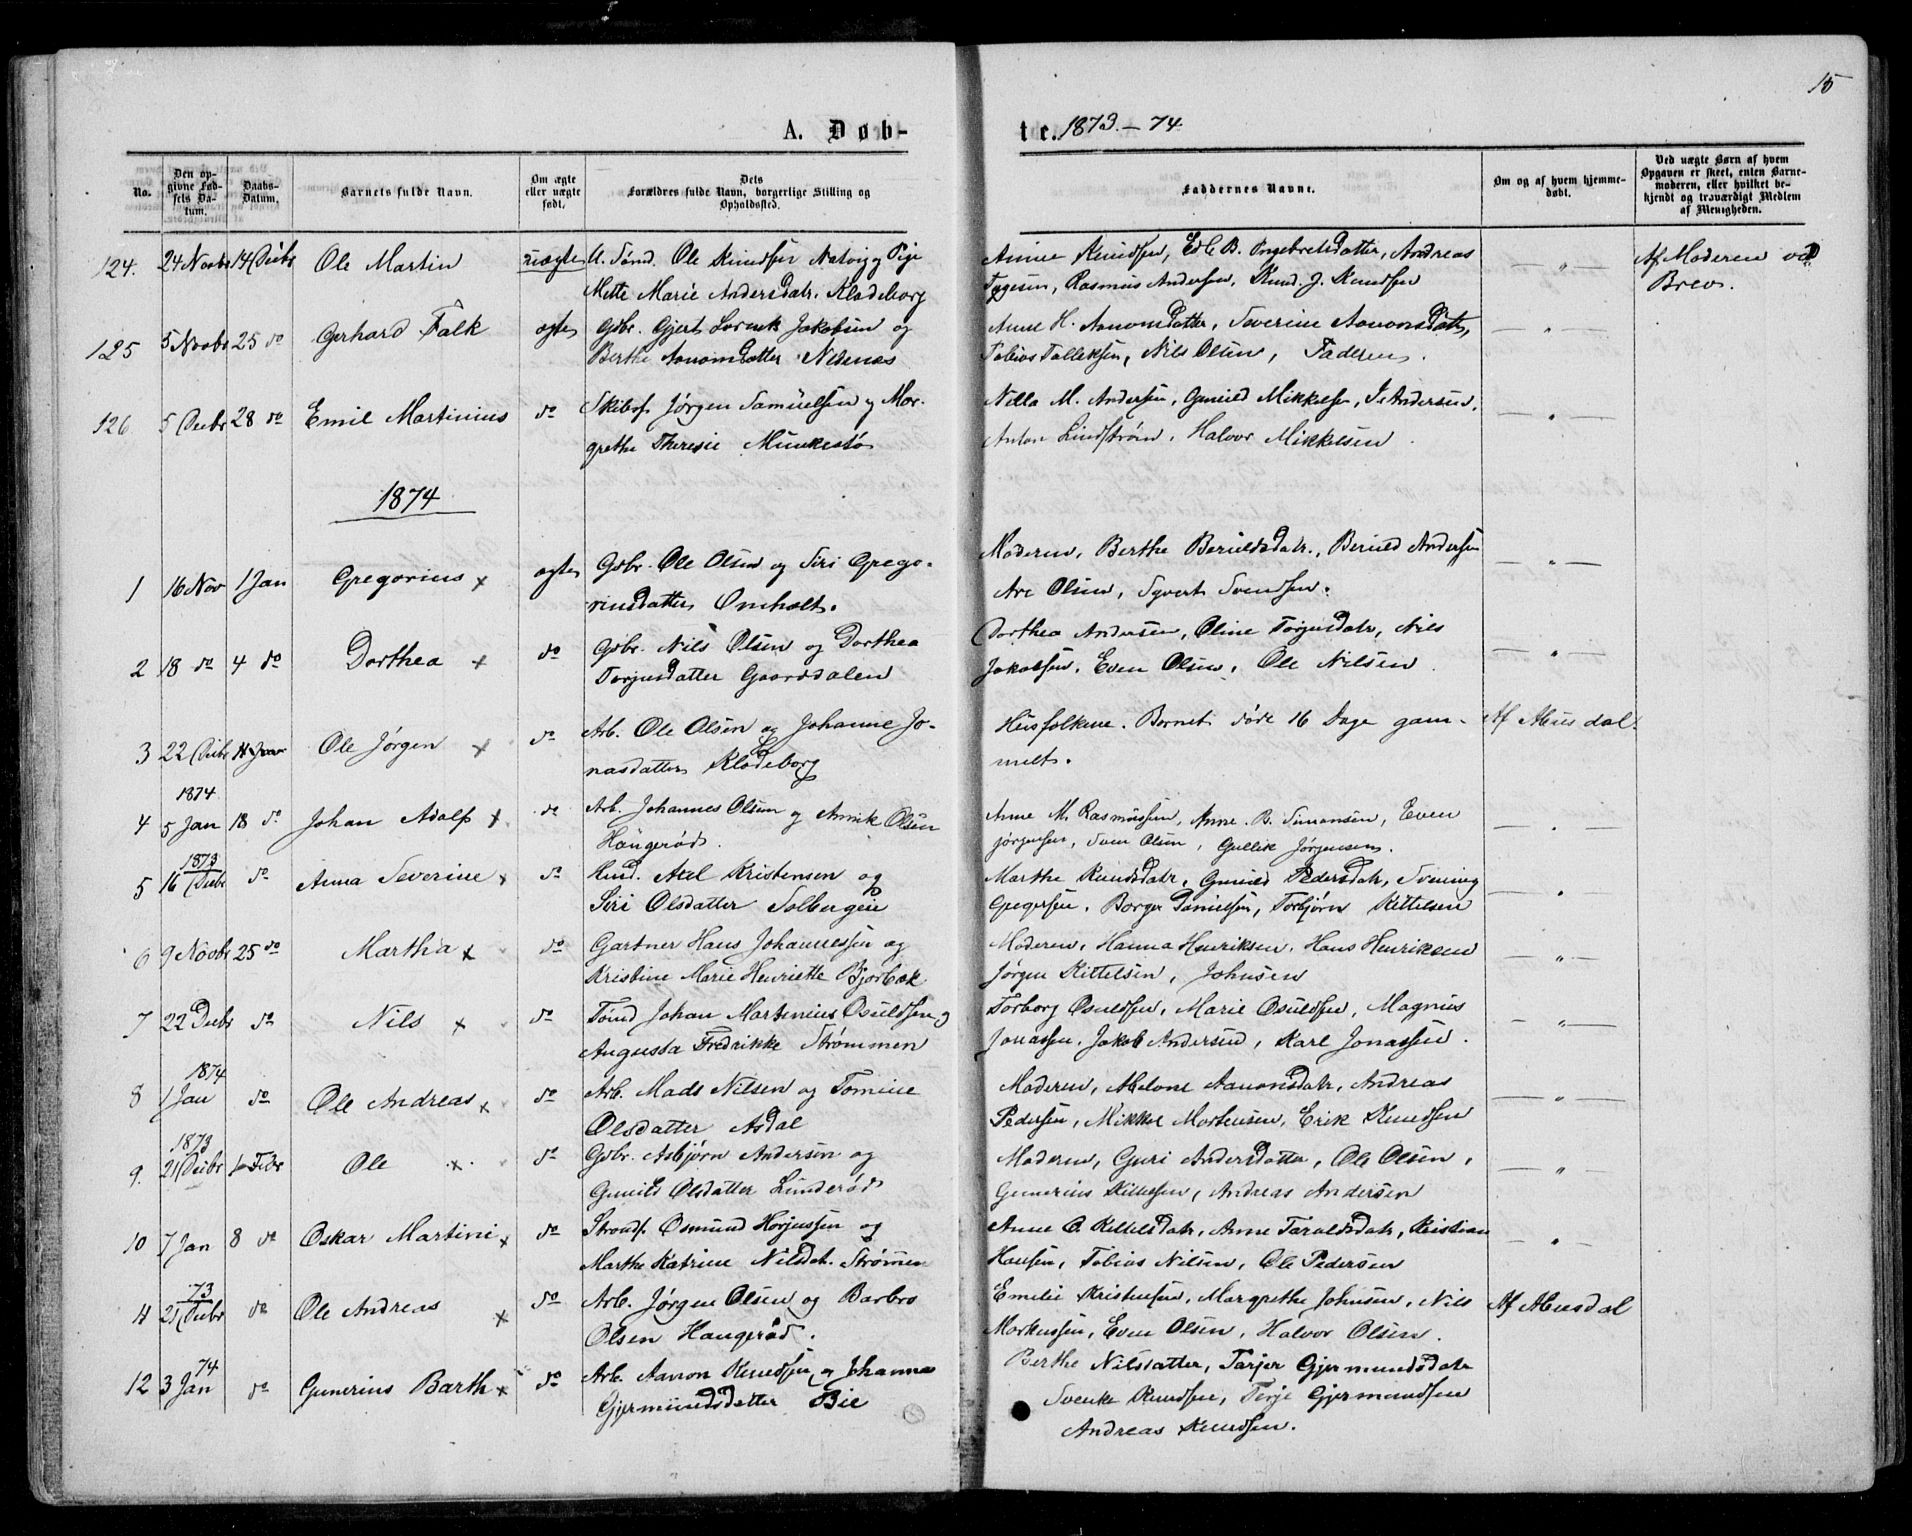 15
A. Døb-
te. 1873-74
No.
Den op-
givne Fød-
sels Da-
tum.
Daabs-
Datum.
Barnets fulde Navn.
Om ægte
eller uægte
født.
Dets
Forældres fulde Navn, borgerlige Stilling og
Opholdssted.
Faddernes Navne.
Om og af hvem hjemme-
døbt.
Ved uægte Børn af hvem
Opgaven er skeet, enten Barne-
moderen, eller hvilket be-
kjendt og troværdigt Medlem
af Menigheden.
124. 24 Novbr 14 Decbr Ole Martin uægte U. Tømd. Ole Knudsen Natvig og Pige Anne Knudsen, Edle B. Ingebretsdatter, Andreas — " — Af Moderen ved
Mette Marie Andersdatr. Klødeborg Tygesen, Rasmus Andersen, Knud. J. Knudsen Brev.
125 5 Novbr 25 do Gerhard Falk ægte Gdbr. Gjert Jakobsen og Anne H. Aanonsdatter, Severine Aanonsdatr, — " —
Berthe Aanonsdatter Nedenæs Tobias Tallaksen, Nils Olsen, Faderen.
126 5 Decbr 28 do Emil Martinius do Skibsf. Jørgen Samuelsen og Mar- Nilla M. Andersen, Gunild Mikkelsen, J. Andersen, — " —
grethe Theresie Munkestø Anton Lindstrøm, Halvor Mikkelsen
1874
1 16 Nov 1 Jan Gregorius x ægte Gdbr. Ole Olsen og Siri Grego- Moderen, Berthe Beruldsdatr., Beruld Andersen — " —
riusdatter Omholt. Are Olsen, Syvert Svendsen.
2 18 do 4 do Dorthea x do Gdbr. Nils Olsen og Dorthea Dorthea Andersen, Oline Torjusdatr, Nils — " —
Torjusdatter Gaarddalen Jakobsen, Even Olsen, Ole Nilsen
3 22 Decbr 11 Jan Ole Jørgen x do Arb. Ole Olsen og Johanne Jo- Husfolkene. Barnet døde 16 Dage gam- Af Abusdal.
nasdatter Klødeborg melt.
1874
4 5 Jan 18 do Johan Adolf x do Arb. Johannes Olsen og Annik Olsen Anne M. Rasmussen, Anne. B. Simonsen, Even — " —
Haugerød. Jørgensen, Sven Olsen, Gullik Jørgensen.
1873
5 16 Decbr do Anna Severine x do Husd. Axel Kristensen og Marthe Knudsdatr, Gunild Pedersdatr, Svening — " —
Siri Olsdatter Solbergeie Gregersen. Børge Danielsen, Torbjørn Kittelsen
6 9 Novbr 25 do Martha x do Gartner Hans Johannessen og Moderen, Hanna Henriksen, Hans Henriksen — " —
Kristine Marie Henriette Bjorbæk Jørgen Kittelsen, Johnsen
7 22 Decbr do Nils x do Tømd Johan Martinius Osuldsen og Torborg Osuldsen, Marie Osuldsen, Magnus — " —
Augusta Fredrikke Strømmen Jonassen, Jakob Andersen, Karl Jonassen.
1874
8 1 Jan do Ole Andreas x do Arb. Mads Nilsen og Tomine Moderen, Abelone Aanonsdatr, Andreas — " —
Olsdatter Asdal Pedersen, Mikkel Mortensen, Erik Knudsen
1873
9. 21 Decbr 1 Febr Ole x do Gdbr. Asbjørn Andersen og Moderen, Guri Andersdatter, Ole Olsen, — " —
Gunild Olsdatter Lunderød Gunerius Andreas Andersen
10 7 Jan 8 do Oskar Martini x do Osmund og Anne O. Kittelsdatr, Anne Taraldsdatr, Kristian — " —
Marthe Katrine Nilsdat. Strømen Hansen, Tobias Nilsen, Ole Pedersen
73
11 21 Decbr do Ole Andreas x do Arb. Jørgen Olsen og Barbro Emilie Kristensen, Margrethe Johnsen, Nils Af Abusdal
Olsen Haugerød. Markussen, Even Olsen, Halvor Olsen.
74
12 3 Jan do Gunerius Barth x do Arb. Aanon Knudsen og Johanne Berthe Nilsdatter, Tarjer Gjermundsdatr
Gjermundsdatter Bie Svenke Knudsen, Terje Gjermundsen
Andreas Knudsen.